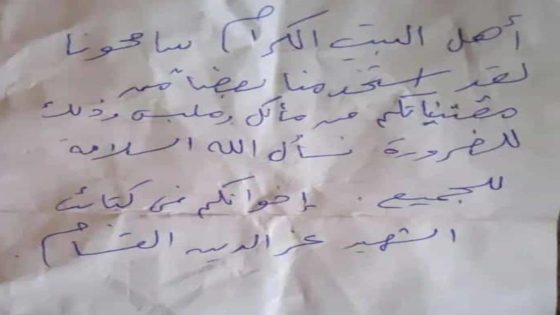 أهل البيت الكرام سامحونا
لقد استخدمنا بعضاً من
مقتنياتكم من مأكل وملبس وذلك
للضرورة نسأل الله السلامة
للجميع . إخوانكم في كتائب
الشهيد عز الدين القسام .